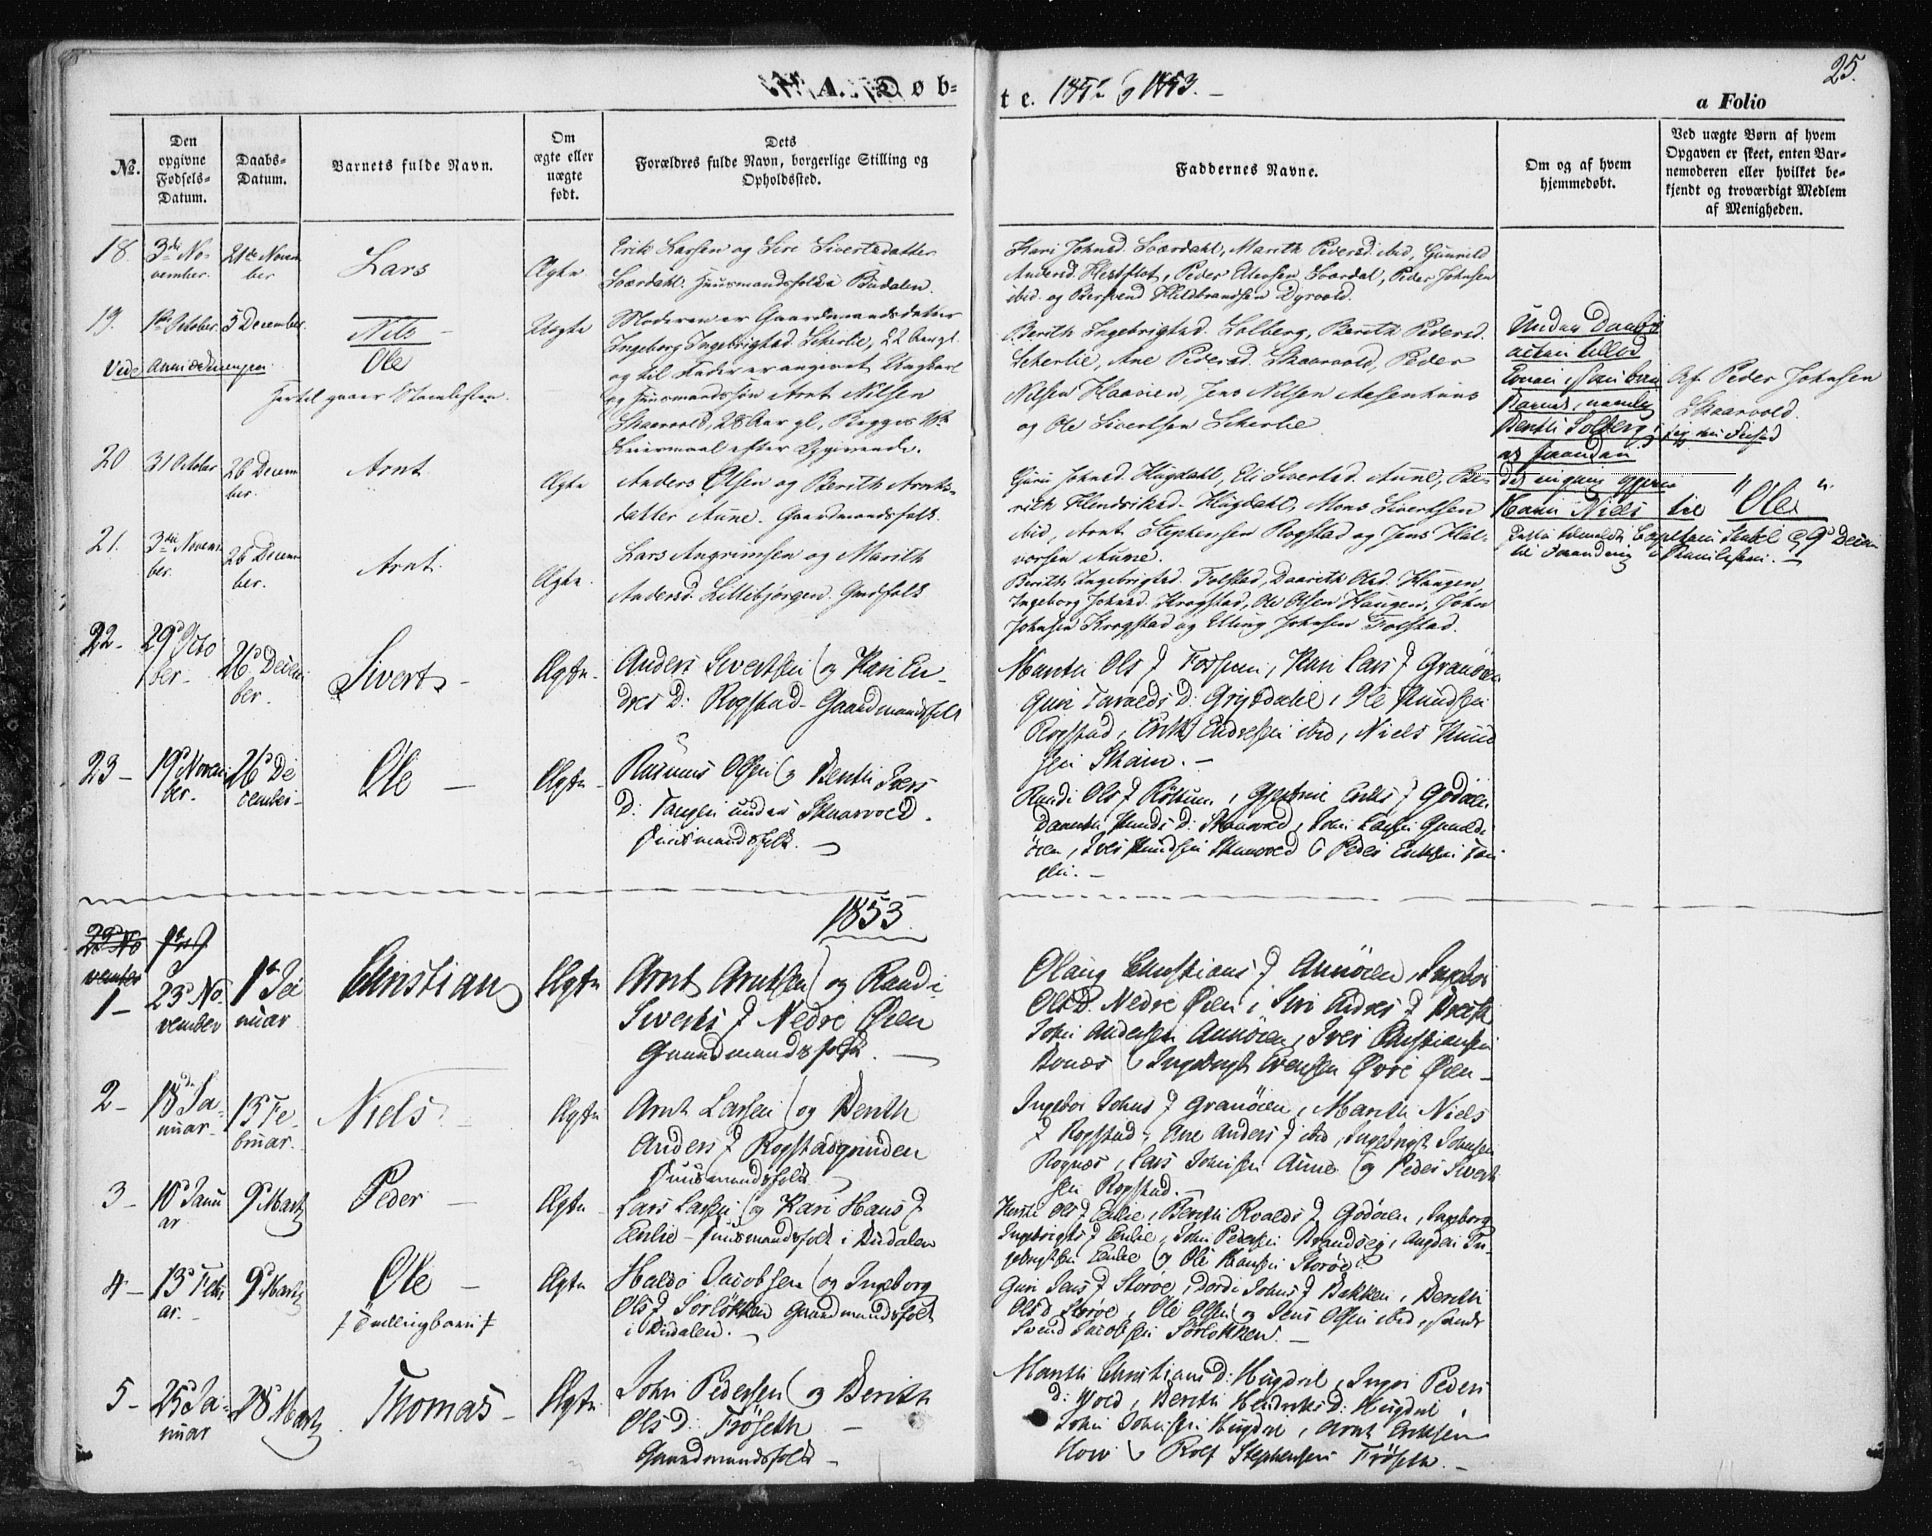 A. Døb-
te. 1852 & 1853.
25.
a Folio
No.
Den opgivne Fødsels-Datum.
Daabs-Datum.
Barnets fulde Navn.
Om ægte eller uægte født.
Dets Forældres fulde Navn, borgerlige Stilling og Opholdssted.
Faddernes Navne.
Om og af hvem hjemmedøbt.
Ved uægte Børn af hvem Opgaven er skeet, enten Barnemoderen eller hvilket bekjendt og troværdigt Medlem af Menigheden.
18. 3die November. 21de November Lars Ægte
Erik Larsen og Siri Sivertsdatter
Svardahl. Huusmandsfolk i Budalen.
Kari Johnsd. Svardahl, Marith Pedersd. ibid, Gunnild
Andersd. Hestflot, Peder Ellevsen Svardal, Peder Johnsen
ibid. og Bersvend Hildbrandsen Dyrvold.
19. 1ste October. 5 December. Nils Uægte
Ole
Vide Anmærkningen
Hertil gaaer Stamlisten.
Moderen er Gaardmandsdatter
Ingeborg Ingebrigtsd. Scherlie, 22 Aar gl.
og til Fader er angivet Ungkarl
og Huusmandssøn Arnt Nilsen
Skaarvold, 28 Aar gl, Begges 1ste
Leiermaal efter Opgivende.
Berith Ingebrigtsd. Solberg, Berith Pedersd.
Scherlie, Ane Pedersd. Skaarvold, Peder
Nilsen Haavien, Jens Nilsen Aasenhuus
og Ole Sivertsen Scherlie
Under Daabs
acten
Barnet, nemlig
Berith Solberg
Navn Niels til "Ole"
Af Peder Johnsen
Skaarvold.
20 31 October 26 December. Arnt Ægte
Anders Olsen og Berith Arnts-
datter Aune. Gaardmandsfolk.
Guri Johnsd. Hugdahl, Eli Sivertsd. Aune, Be-
rith Hendriksd. Hugdahl, Mons Sivertsen
ibid, Arnt Stephensen Rogstad og Jens Hal-
vorsen Aune.
21. 3die November. 26 December. Arnt. Ægte.
Lars Angrimsen og Marith
Andersd. Littlebjørgen. Gmdfolk
Berith Ingebrigtsd. Folstad, Daarith Olsd. Haugen,
Ingeborg Johnsd. Krogstad, Ole Olsen Haugen, John
Johnsen Krogstad og Elling Johnsen Folstad.
22- 29d October- 26d December. Sivert - Ægte-
Anders Sivertsen og Kari En-
dres D: Rogstad- Gaardmandsfolk
Marith Ols D Fossum, Kari Lars D Granøien
Guri Taralds D: Grytdahl, Ole Knudsen
Rogstad, Erik Endresen ibid, Niels Knud
sen Skain.-
23- 19d November. 26d December- Ole - Ægte-
Rasmus Olsen og Berith Ivers
D: Tangen under Skaarvold.
Huusmandsfolk.
Randi Ols D Röttum, Gjertrud Eriks D Godøien
Daarith Knuds D: Skaarvold, John Larsen
øien, Iver Knudsen Skaarvold & Peder Eriksen Tan
gen.-
1853.
1- 23d November 1ste Januar Christian Ægte
Arnt Arntsen og Randi
Siverts D Nedre Øien
Gaardmandsfolk.
Olaug Christians D Aunøien, Ingebor
Ols D. Nedre Øien, Siri Endres D
John Andersen Aunøien, Iver Christiansen
Bonæs & Ingebrigt Evensen Øvre Øien-
2- 18d Januar. 13d Februar. Niels Ægte
Arnt Larsen og Berith
Anders D Rogstadgrinden
Huusmandsfolk.
Ingebor Johns D Granøien, Marith Niels
D Rogstad, Ane Anders D ibid, Ingebrigt Johnsen
Rognæs, Lars Johnsen Aune og Peder Sivert
sen Rogstad.-
3- 10d Januar 9d Martz Peder - Ægte
Lars Larsen og Kari Hans D
Enlie- Huusmandsfolk i Budalen
Kirsti Ols D Enlie, Berith Roalds D Godøien, Ingeborg
Ingebrigts D Enlie, John Pedersen Brandøeg, Angrim In-
gebrigtsen Enlie og Ole Hansen Storøe
4- 13d Februar. 9d Martz Ole - Ægte
Tvillingbarn
Haldo Jacobsen og Ingeborg
Ols D Sörløkken Gaardmandsfolk
i Budalen.
Guri Jens D Storøe, Dordi Johns D Bakken, Berith
Ols D Storøe, Ole Olsen og Jens Olsen ibid, samt
Svend Jacobsen Sörløkken.-
5- 25d Januar 28d Martz Thomas- Ægte
John Pedersen og Berith
Ols D: Fröseth
Gaardmandsfolk-
Marith Christians D: Hugdal, Inger Peders
D: Wold, Berith Hendriks D: Hugdal,
John Johnsen Hugdal, Arnt Eriksen
Hov & Rolf Stephensen Fröseth.-